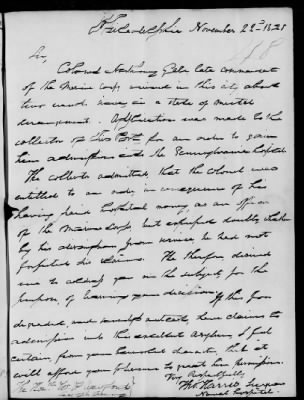 Philadelphia November 22d 1821
Sir,
Colonel Anthony Gale late commandant
of the Marine Corps, arrived in this city about
two weeks since, in a state of mental
derangement. Application was made to the
collector of this Port for an order to gain
him admission into the Pennsylvania Hospital
The collector admitted, that the Colonel was
entitled to an order, in consequence of his
having paid hospital money, as an officer
of the Marine Corps, but expressed doubts, whether
by his dismission from service, he had not
forfeited his claims. He therefore desired
me to address you on the subject, for the
purpose, of learning your decision.
If this poor
degraded, and outcast, have claims to
admission into this excellent asylum, I feel
certain, from your benevolent character, that it
will afford you pleasure to grant him permission.
Very Respectfully
Thos Harris Surgeon
Naval Hospital
The Honble